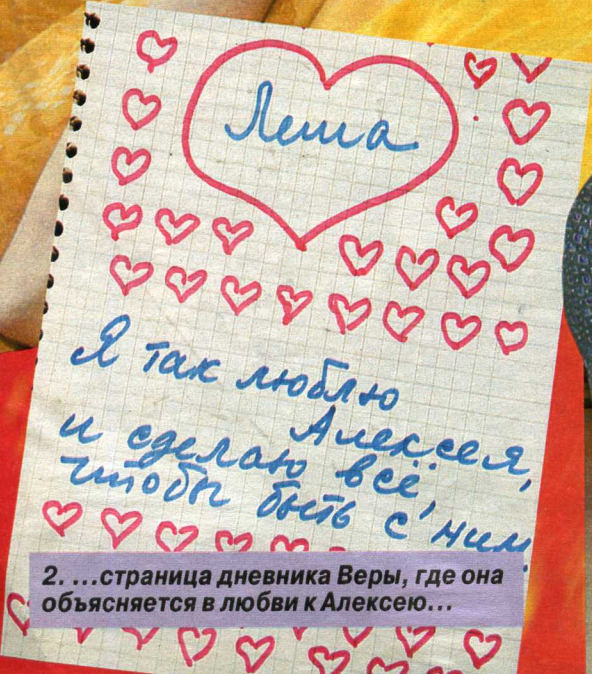 Леша
Я так люблю
Алексея,
и сделаю всё,
чтобы быть с ним
2. ...страница дневника Веры, где она
объясняется в любви к Алексею...